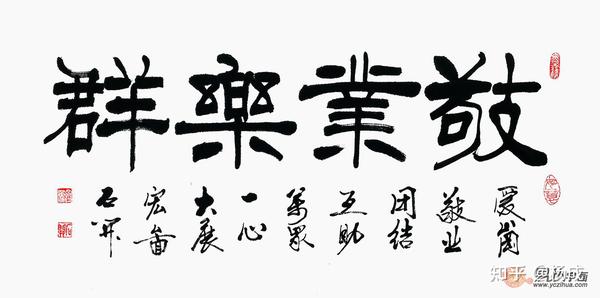 敬業樂群
爱崗
敬业
团结
互助
萬眾
一心
大展
宏图
石开
知乎
www.yczihua.com